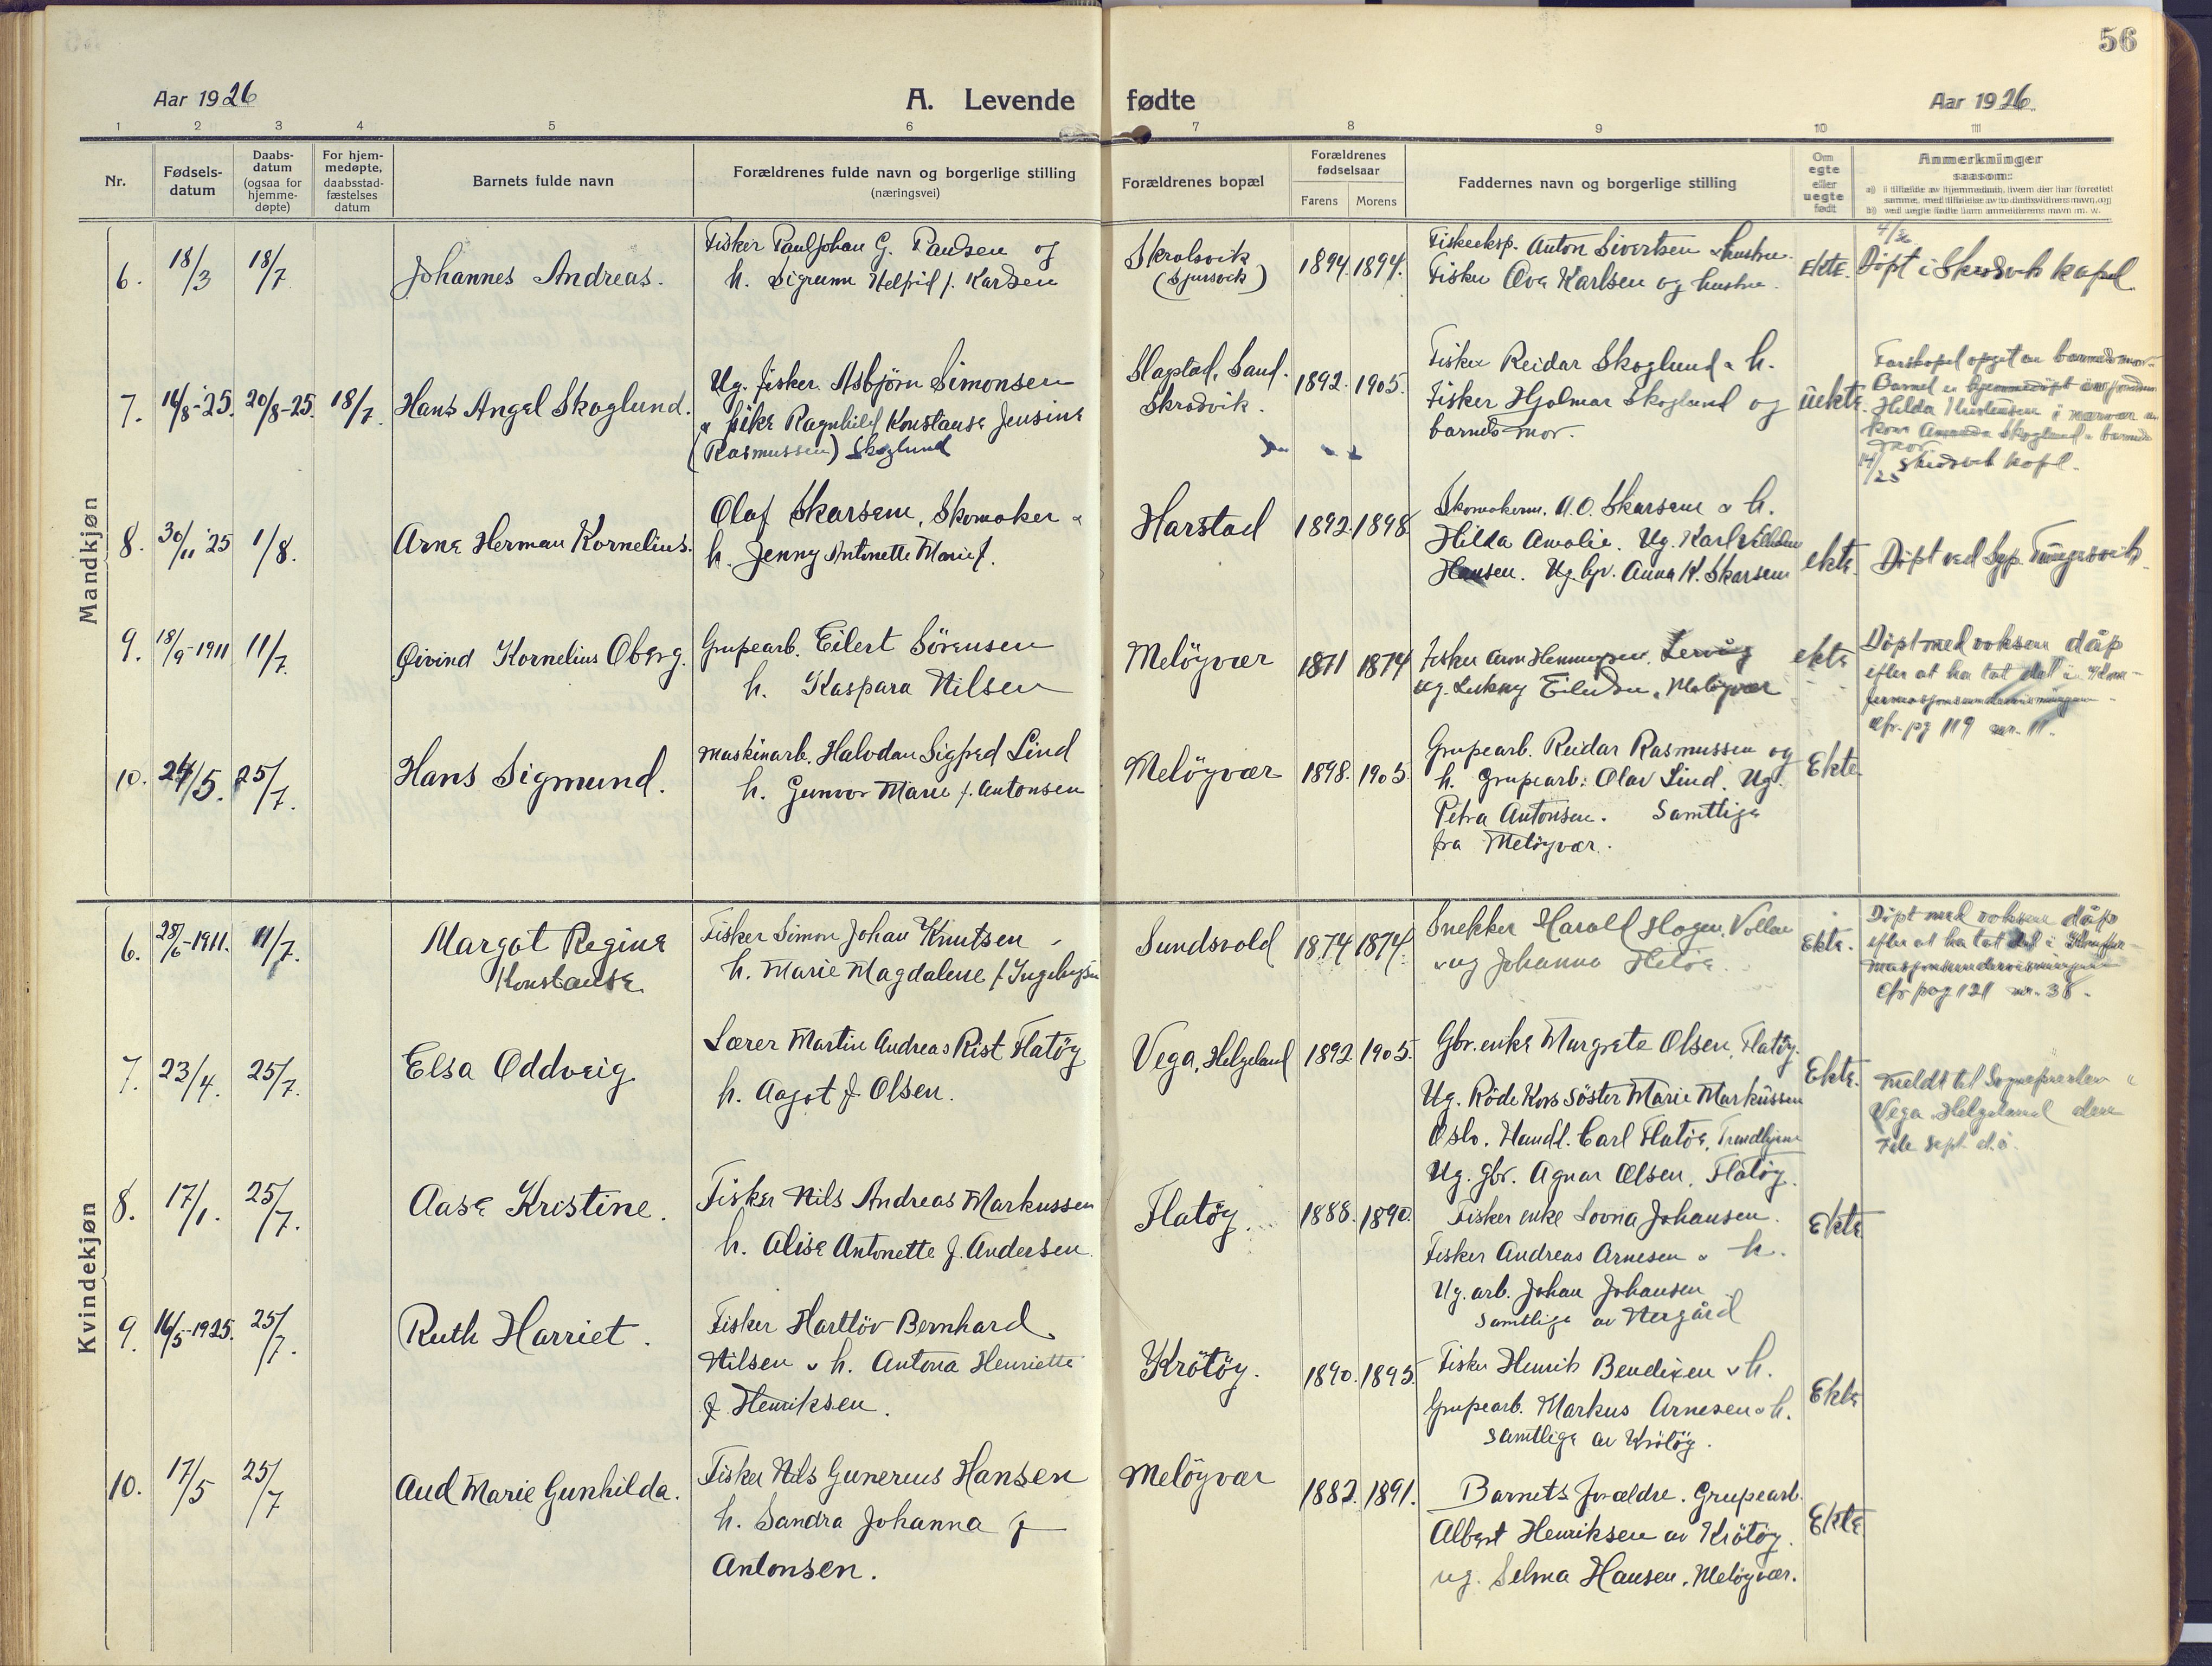 56
Aar 1926
A. Levende fødte
Aar 1926.
1 2 3 4 5 6 7 8 9 10 11
Nr.
Fødsels-
datum
Daabs-
datum
(ogsaa for
hjemme-
døpte)
For hjem-
medøpte,
daabsstad-
fæstelses
datum
Barnets fulde navn
Forældrenes fulde navn og borgerlige stilling
(næringsvei)
Forældrenes bopæl
Forældrenes
fødselsaar
Farens Morens
Faddernes navn og borgerlige stilling
Om
egte
eller
uegte
født
Anmerkninger
saasom:
Mandkjøn
6. 18/3 18/7
Johannes Andreas.
Fisker Paul Johan G. Paulsen og
h. Sigrunn f. Karlsen
Skrolsvik
1894. 1894.
Fiskeeksp. Anton Sivertsen & hustru.
Fisker Karlsen og hustru.
Ekte.
Døpt i Skrolsvik kapel
7. 16/8-25. 20/8-25. 18/7.
Hans Angel Skoglund.
Ug. fisker Asbjörn Simonsen
& pike Ragnhild Konstanse Jensine
(Rasmussen) Skoglund
Slagstad, Sand.
Skrolsvik.
1892. 1905.
Fisker Reidar Skoglund & h.
Fisker Hjalmar Skoglund og
barnets mor.
Uekte.
Barnet er
Hilda
Skoglund
mor
Skrolsvik kapel.
8. 30/11 25 1/8.
Arne Herman Kornelius.
Olaf Skarsem, Skomaker &
h. Jenny Antonette Marie f.
Harstad
1892. 1898
Skomakerm. A.O. Skarsem & h.
Hilda Amalie. Ug. Karl
Hansen. Ug. Anna K. Skarsem
ekte.
Döpt ved Sgp.
9. 18/9-1911 11/7.
Øivind Kornelius Oberg.
Grupearb. Eilert Sörensen
h. Kaspara Nilsen
Melöyvær
1871 1874
Fisker
ug. Eilertsen, Melöyvær
ekte
Döpt med voksen dåp
efter at ha tat del i Kon-
firmasjonsundervisningen
Cfr. pg 119 nr. 11.
10. 24/5. 25/7.
Hans Sigmund.
Maskinarb. Halvdan Sigfred Lind
h. Gunvor Marie f. Antonsen
Melöyvær
1898. 1905
Grupearb. Reidar Rasmussen og
h. Grupearb. Olav Lind. Ug.
Petra Antonsen. Samtlige
fra Melöyvær.
Ekte.
Kvindekjøn
6. 28/6-1911. 11/7.
Margot Regine
Konstanse
Fisker Simon Johan Knutsen
h. Marie Magdalene f. Ingebrigtsen
Sundsvold
1874 1874.
Snekker Harald Hagen, Vollan
& ug Johanna
Ekte.
Döpt med voksen dåp
efter at ha tat del i Konfir-
masjonsundervisningen
Cfr pag 121 nr. 38.
7. 23/4. 25/7.
Elsa Oddveig
Lærer Martin Andreas Rist Flatöy
h. Aagot f. Olsen.
Vega, Helgeland
1892. 1905.
Gbr. enke Margrete Olsen, Flatöy.
Ug. Röde Kors Söster Marie Markussen
Oslo. Handl. Carl Flatöy, Trondhjem
Ug. gbr. Agnar Olsen, Flatöy.
Ekte.
Meldt til Sogneprесten i
Vega, Helgeland den
7de Sept. d.å.
8. 17/1. 25/7.
Aase Kristine.
Fisker Nils Andreas Markussen
h. Alise Antonette f. Andersen.
Flatöy.
1888. 1890.
Fisker enke Lovna Johansen.
Fisker Andreas Arnesen & h.
Ug. arb. Johan Johansen
Samtlige av Nergård
Ekte
9. 16/5-1925. 25/7.
Ruth Harriet.
Fisker Hartlöv Bernhard
Nilsen & h. Antona Henriette
f. Henriksen.
Krötöy.
1890. 1895
Fisker Henrik Bendixen & h.
Grupearb. Markus Arnesen & h.
Samtlige av Krötöy.
Ekte
10. 17/5 25/7
Aud Marie Gunhilda.
Fisker Nils Gunerius Hansen
h. Sandra Johanna f
Antonsen.
Melöyvær
1882. 1891.
Barnets forældre. Grupearb.
Albert Henriksen av Krötöy.
ug. Selma Hansen, Melöyvær.
Ekte